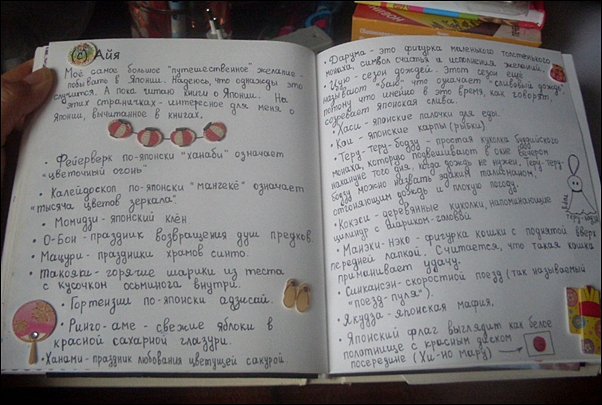 Айя
Моё самое большое "путешественное" желание -
побывать в Японии. Надеюсь, что однажды это
случится. А пока читаю книги о Японии. На
этих страничках - интересное для меня о
Японии, вычитанное в книгах.
• Фейерверк по-японски "ханаби" означает
"цветочный огонь"
• Калейдоскоп по-японски "мангекё" означает
"тысяча цветов зеркала".
• Момидзи - японский клён
• О-Бон - праздник возвращения душ предков.
• Мацури - праздники храмов синто.
• Такояки - горячие шарики из теста
с кусочком осьминога внутри.
• Гортензии по-японски адзисай.
• Ринго-аме - свежие яблоки в
красной сахарной глазури.
• Ханами - праздник любования цветущей сакурой
• Дарума - это фигурка маленького толстенького
монаха, символ счастья и исполнения желаний.
• Цую - сезон дождей. Этот сезон ещё
называют "бай-у", что означает "сливовый дождь",
потому что именно в это время, как говорят,
созревает японская слива.
• Хаси - японские палочки для еды.
• Кои - японские карпы (рыбки)
• Теру-теру-бодзу - простая куколка буддийского
монаха, которую подвешивают в окне вечером
накануне того дня, когда дождь не нужен. Теру-теру-
бодзу можно назвать эдаким талисманом,
отгоняющим дождь и плохую погоду.
• Кокэси - деревянные куколки, напоминающие
цилиндр с шариком-головой
Теру-бодзу
• Манэки-нэко - фигурка кошки с поднятой вверх
передней лапкой. Считается, что такая кошка
приманивает удачу.
• Синкансэн - скоростной поезд (так называемый
"поезд-пуля").
• Якудза - японская мафия.
• Японский флаг выглядит как белое
полотнище с красным диском
посередине (Хи-но мару)